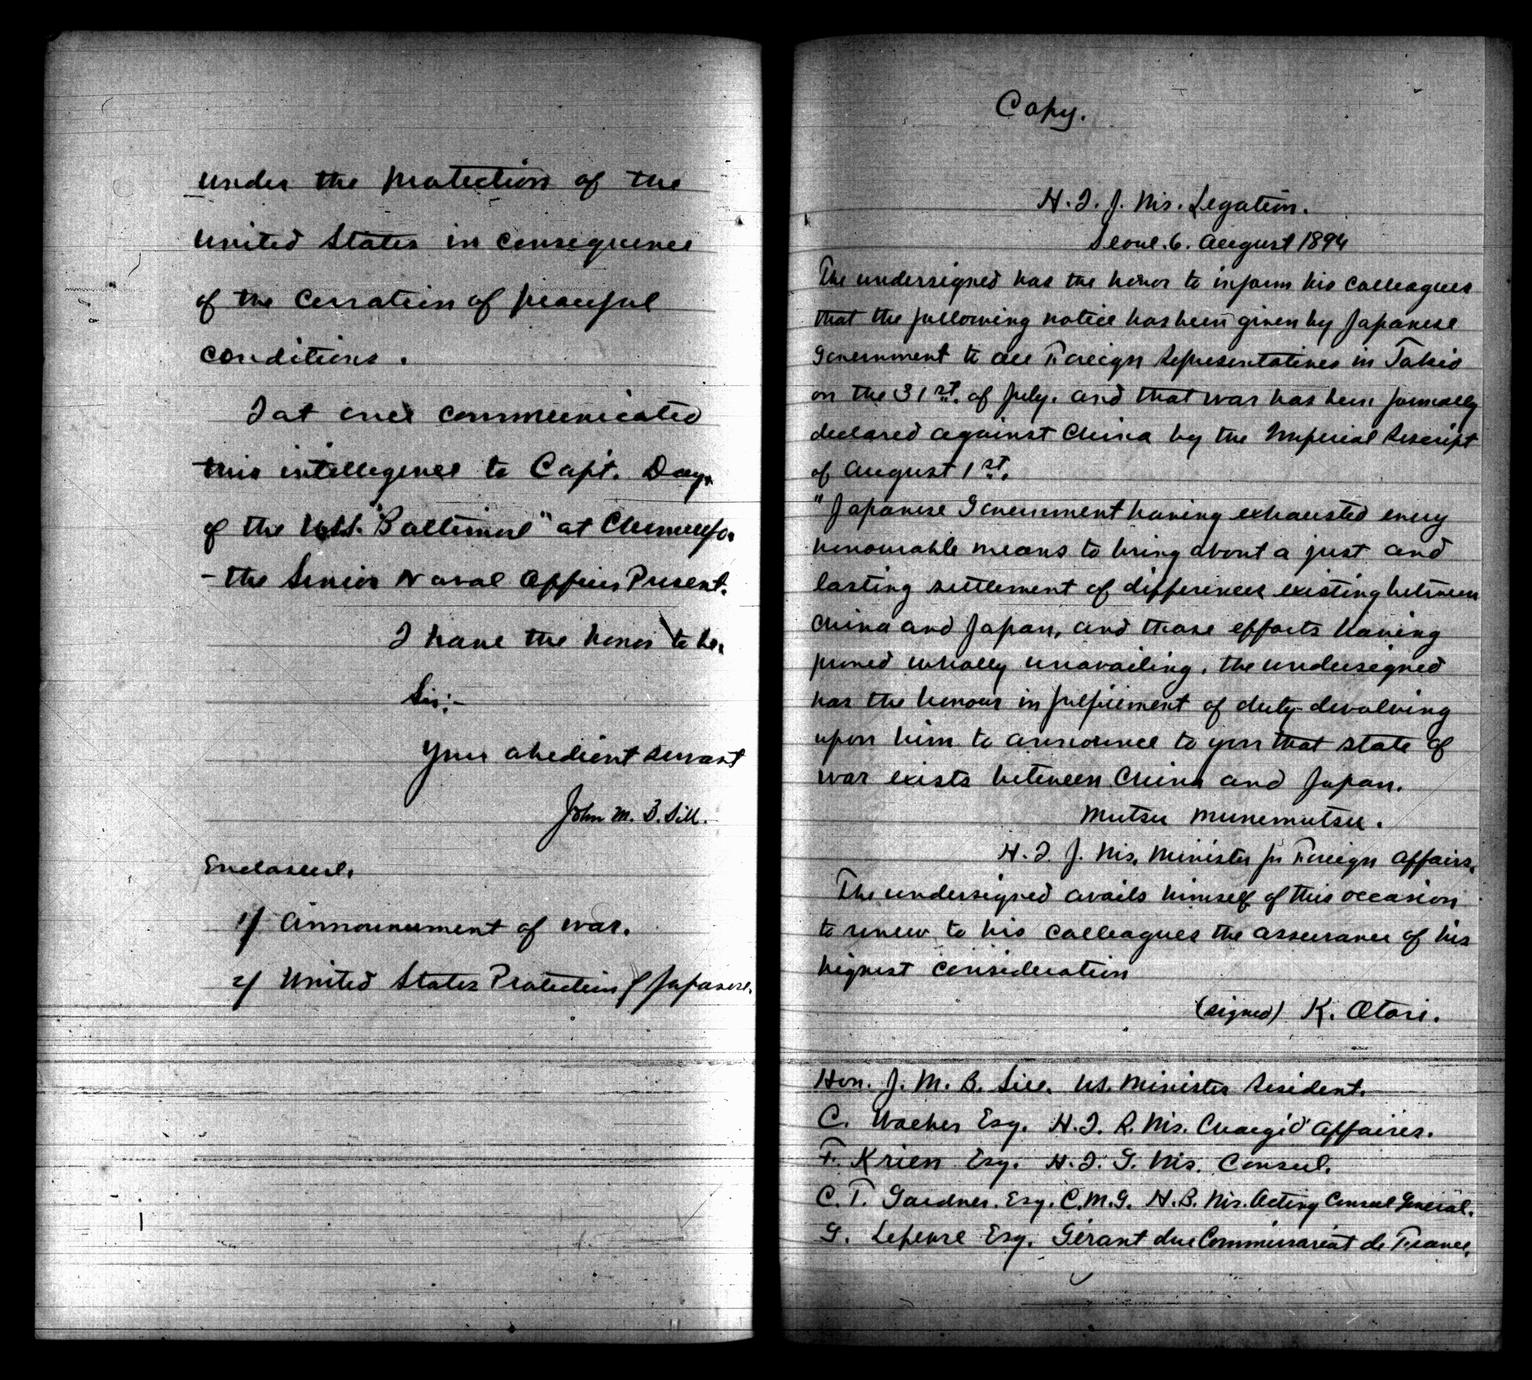 under the protection of the
United States in consequence
of the cessation of peaceful
conditions.
I at once communicated
this intelligence to Capt. Day,
of the U.S.S. "Baltimore" at Chemulpo.
- the Senior Naval Officer Present.
I have the honor to be,
Sir:-
Your obedient servant
John M. B. Sill.
Enclosures.
1/ Announcement of war.
2/ United States Protection of Japanese.
Copy.
H. I. J. Ms. Legation.
Seoul. 6. August 1894
The undersigned has the honor to inform his colleagues
that the following notice has been given by Japanese
Government to all Foreign Representatives in Tokio
on the 31st. of July, and that war has been formally
declared against China by the Imperial Rescript
of August 1st.
"Japanese Government having exhausted every
honourable means to bring about a just and
lasting settlement of differences existing between
China and Japan, and those efforts having
proved wholly unavailing, the undersigned
has the honour in fulfilment of duty devolving
upon him to announce to you that state of
war exists between China and Japan.
Mutsu Munemutsu.
H. I. J. Ms. Minister for Foreign Affairs.
The undersigned avails himself of this occasion
to renew to his colleagues the assurance of his
highest consideration
(signed) K. Otori.
Hon. J. M. B. Sill. U.S. Minister Resident.
C. Waeber Esq. H. I. R. Ms. Chargé d'Affaires.
F. Krien Esq. H. I. G. Ms. Consul.
C. T. Gardner. Esq. C.M.G. H. B. Ms. Acting Consul General.
G. Lefevre Esq. Gérant du Commissariat de France.